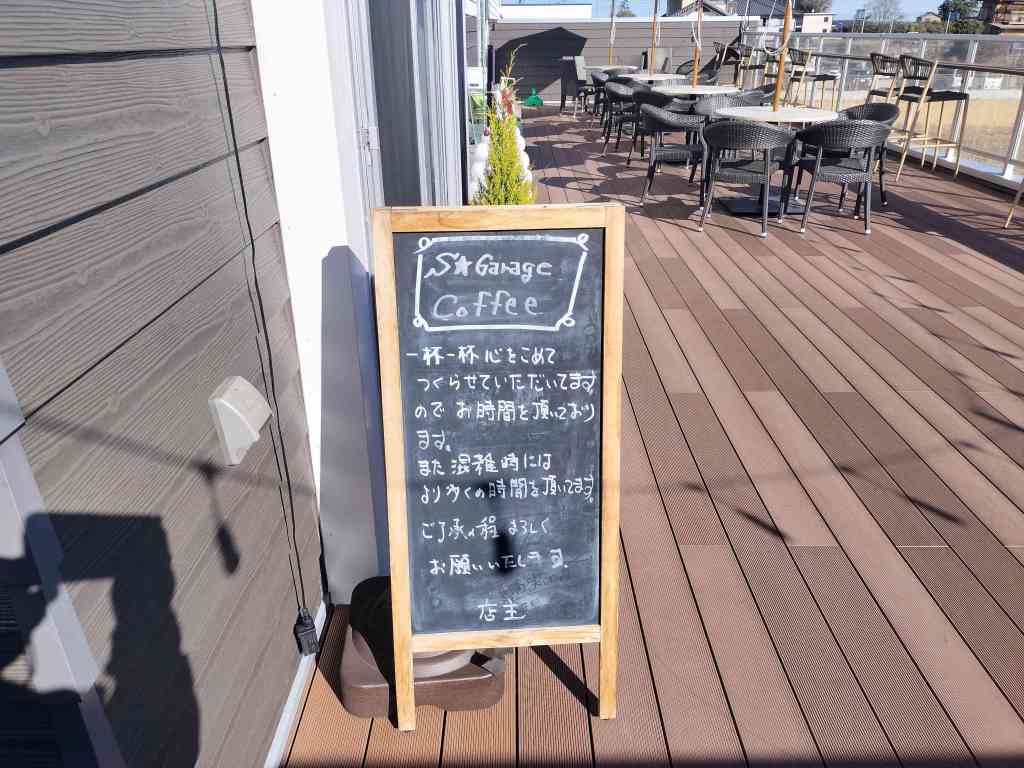 S★Garage
Coffee
一杯一杯心をこめて
つくらせていただいてます
ので お時間を頂いており
ます。
また混雑時には
より多くの時間を頂いてます。
ご了承の程よろしく
お願いいたします。
店主